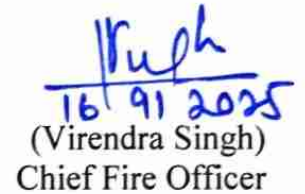 16/91 2025
(Virendra Singh)
Chief Fire Officer